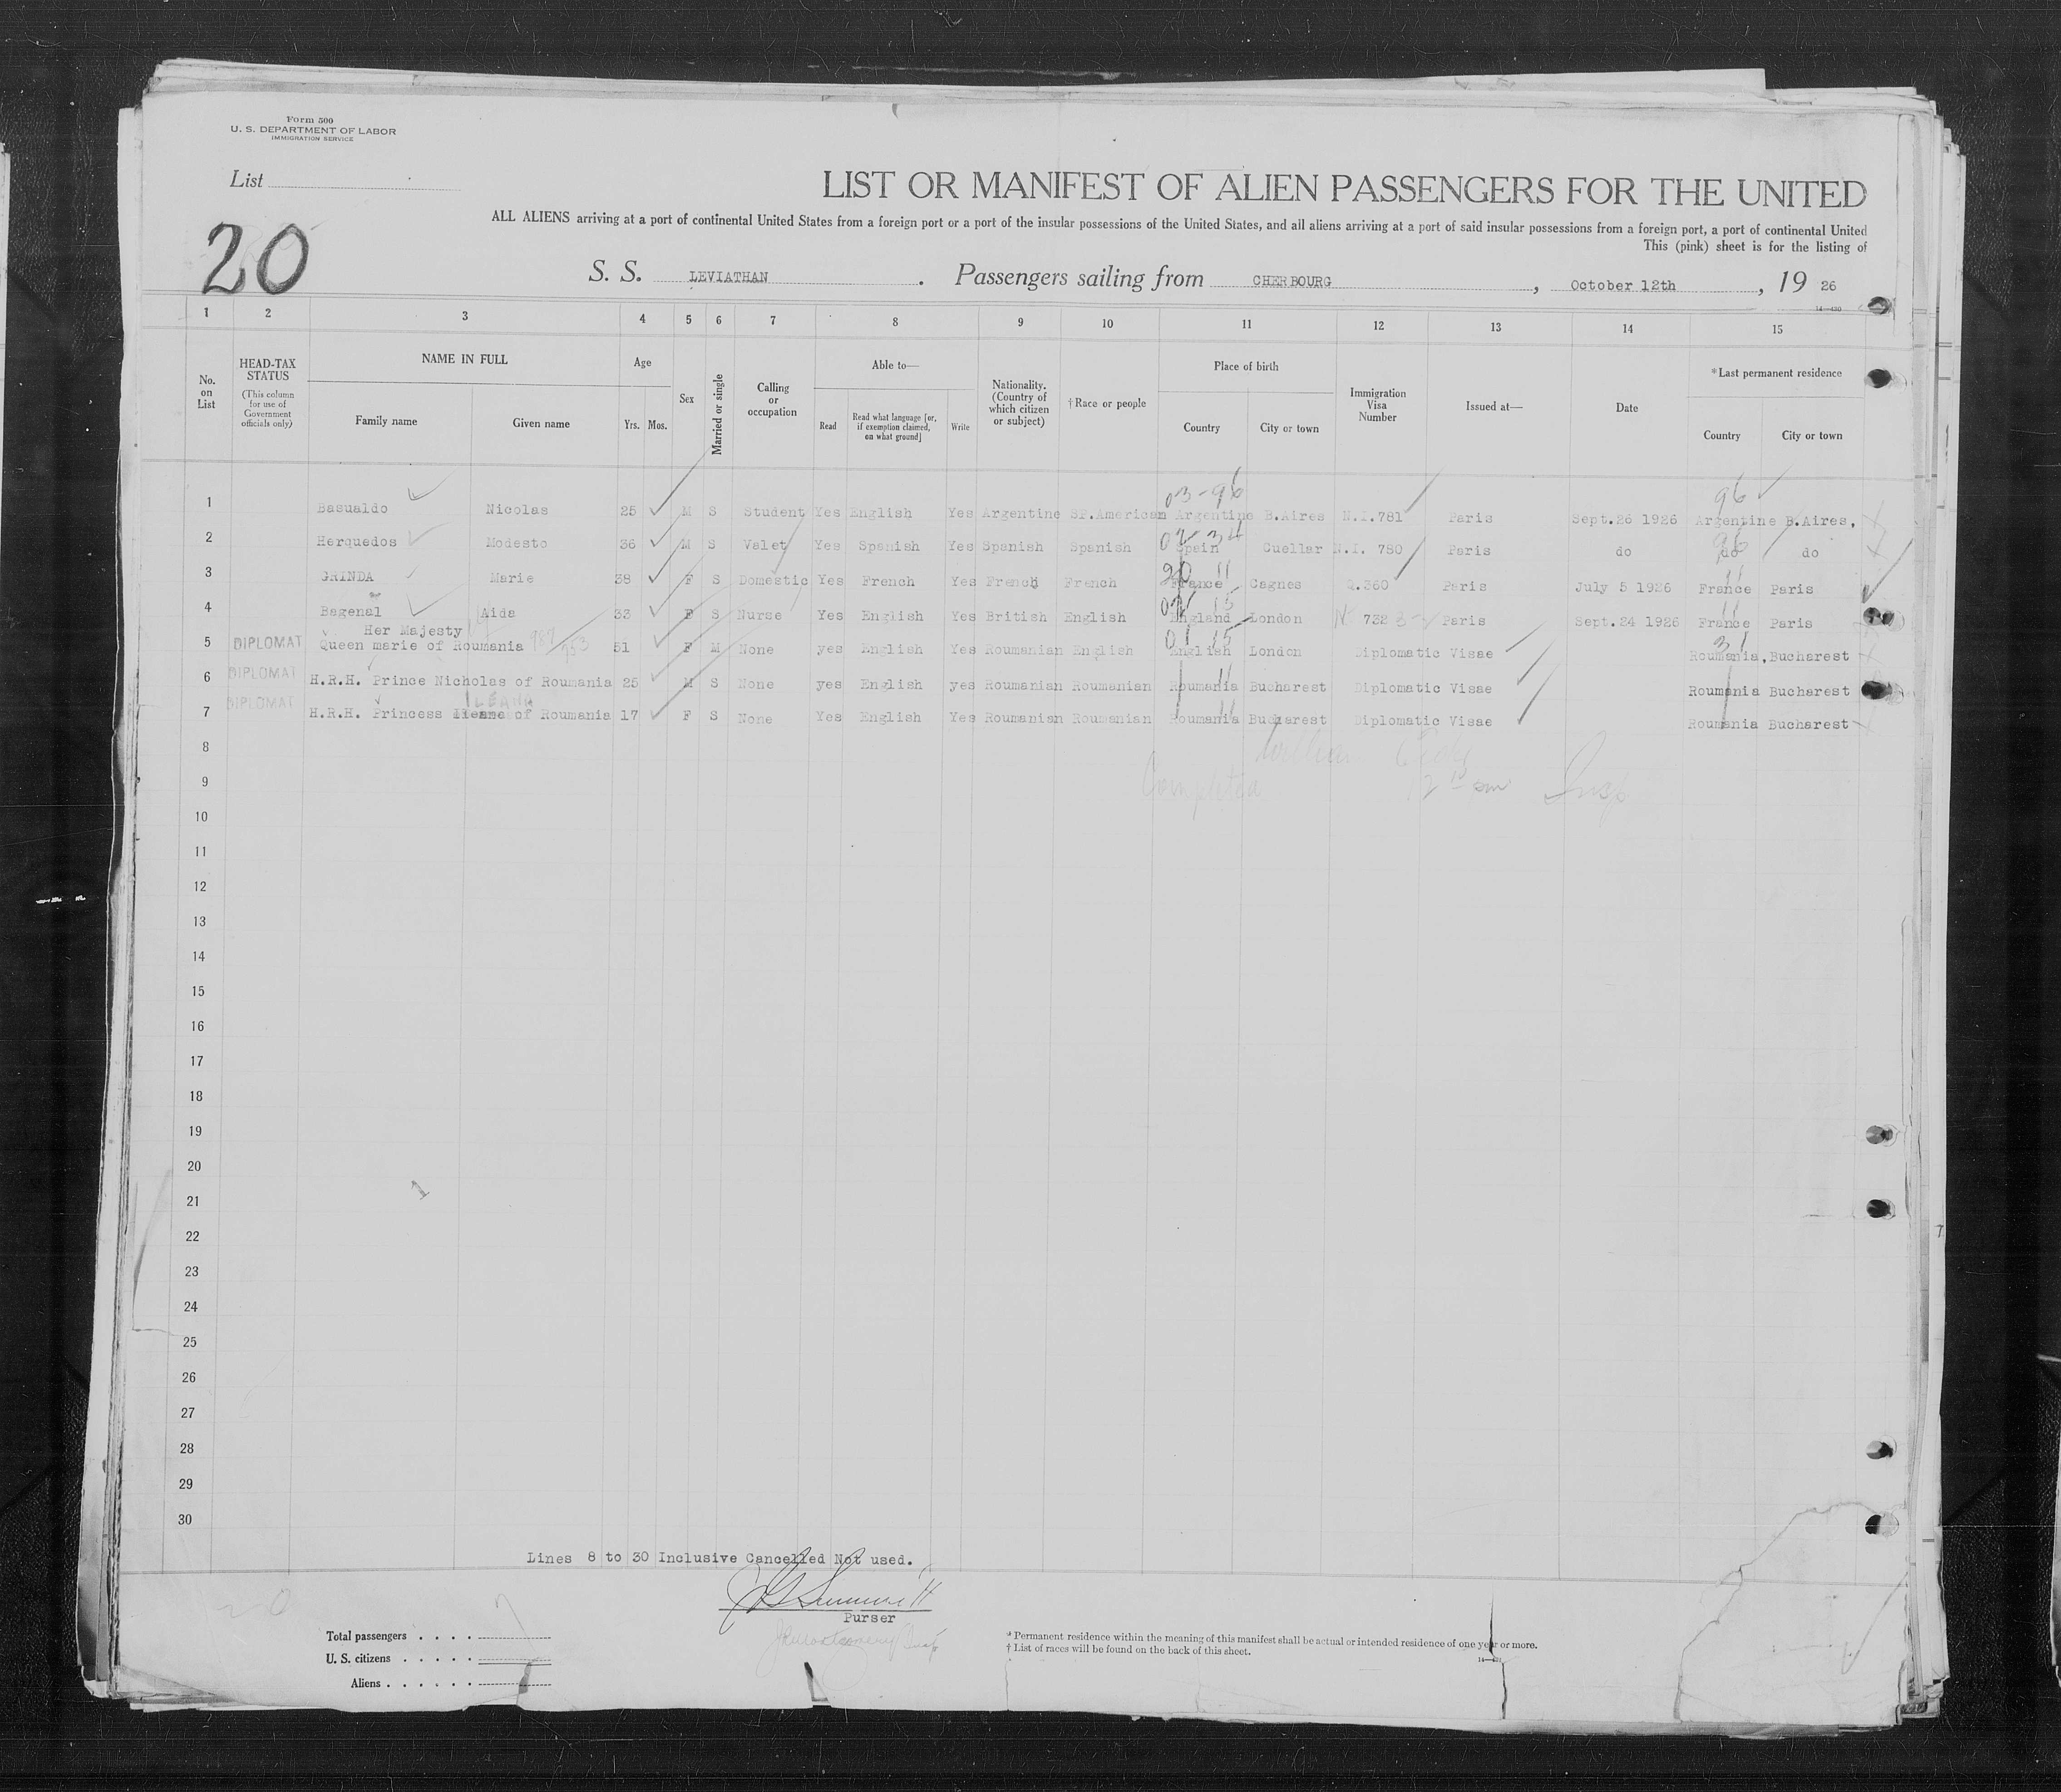 Form 500
U. S. DEPARTMENT OF LABOR
IMMIGRATION SERVICE
List
20
LIST OR MANIFEST OF ALIEN PASSENGERS FOR THE UNITED
ALL ALIENS arriving at a port of continental United States from a foreign port or a port of the insular possessions of the United States, and all aliens arriving at a port of said insular possessions from a foreign port, a port of continental United
This (pink) sheet is for the listing of
S. S. LEVIATHAN . Passengers sailing from CHERBOURG , October 12th , 19 26
1 2 3 4 5 6 7 8 9 10 11 12 13 14 15
No. on List
HEAD-TAX STATUS
(This column for use of Government officials only)
NAME IN FULL
Family name
Given name
Age
Yrs. Mos.
Sex
Married or single
Calling or occupation
Able to—
Read
Read what language [or, if exemption claimed, on what ground]
Write
Nationality. (Country of which citizen or subject)
† Race or people
Place of birth
Country
City or town
Immigration Visa Number
Issued at—
Date
*Last permanent residence
Country
City or town
03-96 96
1 Basualdo Nicolas 25 M S Student Yes English Yes Argentine SP.American Argentine B.Aires N.I.781 Paris Sept.26 1926 Argentine B.Aires,
2 Herquedos Modesto 36 M S Valet Yes Spanish Yes Spanish Spanish Spain Cuellar N.I. 780 Paris do do do
20 11 11
3 GRINDA Marie 38 F S Domestic Yes French Yes French French France Cagnes Q.360 Paris July 5 1926 France Paris
4 Bagenal Aida 33 F S Nurse Yes English Yes British English England London 732 Paris Sept.24 1926 France Paris
Her Majesty
01 15 31
5 DIPLOMAT Queen marie of Roumania 51 F M None yes English Yes Roumanian English English London Diplomatic Visae Roumania, Bucharest
6 DIPLOMAT H.R.H. Prince Nicholas of Roumania 25 M S None yes English yes Roumanian Roumanian Roumania Bucharest Diplomatic Visae Roumania Bucharest
ILEANA
7 DIPLOMAT H.R.H. Princess of Roumania 17 F S None Yes English Yes Roumanian Roumanian Roumania Bucharest Diplomatic Visae Roumania Bucharest
8
9 Completed Insp
10
11
12
13
14
15
16
17
18
19
20
21
22
23
24
25
26
27
28
29
30
Lines 8 to 30 Inclusive Cancelled Not used.
Purser
20
Total passengers
U. S. citizens
Aliens
* Permanent residence within the meaning of this manifest shall be actual or intended residence of one year or more.
† List of races will be found on the back of this sheet.